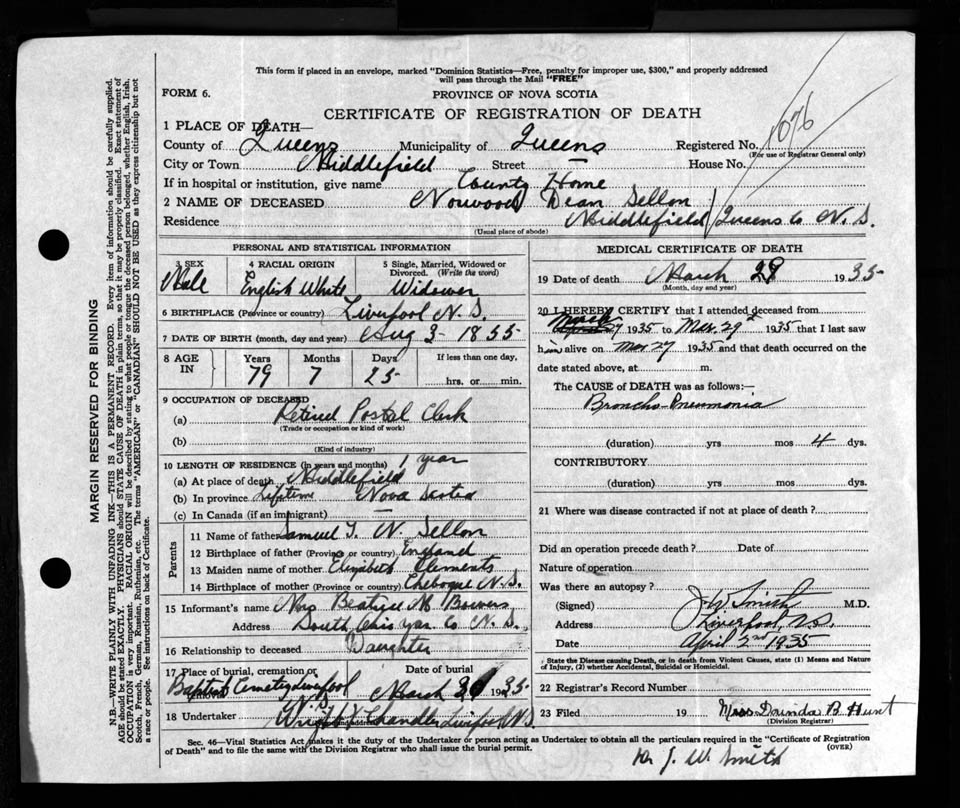 This form if placed in an envelope, marked "Dominion Statistics—Free, penalty for improper use, $300," and properly addressed
will pass through the Mail "FREE"
FORM 6.
PROVINCE OF NOVA SCOTIA
CERTIFICATE OF REGISTRATION OF DEATH
1076
1 PLACE OF DEATH—
County of Queens Municipality of Queens Registered No.
(For use of Registrar General only)
City or Town Middlefield Street — House No.
If in hospital or institution, give name County Home
2 NAME OF DECEASED Norwood Dean Sellon
Residence Middlefield Queens Co N.S.
(Usual place of abode)
PERSONAL AND STATISTICAL INFORMATION
3 SEX 4 RACIAL ORIGIN 5 Single, Married, Widowed or Divorced. (Write the word)
Male English White Widower
6 BIRTHPLACE (Province or country) Liverpool N.S.
7 DATE OF BIRTH (month, day and year) Aug 3 - 1855
8 AGE IN Years Months Days If less than one day,
79 7 25 hrs. or min.
9 OCCUPATION OF DECEASED
(a) Retired Postal Clerk
(Trade or occupation or kind of work)
(b)
(Kind of industry)
10 LENGTH OF RESIDENCE (in years and months) 1 year
(a) At place of death Middlefield
(b) In province Lifetime Nova Scotia
(c) In Canada (if an immigrant) —
Parents
11 Name of father Samuel T. N. Sellon
12 Birthplace of father (Province or country) England
13 Maiden name of mother Elizabeth Clements
14 Birthplace of mother (Province or country) Chebogue N.S.
15 Informant's name Mrs Beatrice M Bowers
Address South Ohio Yar. Co N.S.
16 Relationship to deceased Daughter
17 Place of burial, cremation or removal Date of burial
Baptist Cemetery Liverpool N.S. March 1935
18 Undertaker Wright & Chandler Liverpool N.S
MEDICAL CERTIFICATE OF DEATH
19 Date of death March 28 1935
(Month, day and year)
20 I HEREBY CERTIFY that I attended deceased from
March 27 1935 to Mar. 29th 1935 that I last saw
him alive on Mar 27 1935 and that death occurred on the
date stated above, at m.
The CAUSE of DEATH was as follows:—
Broncho-Pneumonia
(duration) yrs mos 4 dys.
CONTRIBUTORY
(duration) yrs mos dys.
21 Where was disease contracted if not at place of death?
Did an operation precede death? Date of
Nature of operation
Was there an autopsy?
(Signed) J W Smith M.D.
Address Liverpool, N.S.
Date April 2nd 1935
State the Disease causing Death, or in death from Violent Causes, state (1) Means and Nature
of Injury, (2) whether Accidental, Suicidal or Homicidal.
22 Registrar's Record Number
23 Filed 19 B. Hunt
(Division Registrar)
Sec. 46—Vital Statistics Act makes it the duty of the Undertaker or person acting as Undertaker to obtain all the particulars required in the "Certificate of Registration
of Death" and to file the same with the Division Registrar who shall issue the burial permit.
(OVER)
Dr J. W. Smith
MARGIN RESERVED FOR BINDING
N.B.—WRITE PLAINLY WITH UNFADING INK—THIS IS A PERMANENT RECORD. Every item of information should be carefully supplied.
AGE should be stated EXACTLY. PHYSICIANS should STATE CAUSE OF DEATH in plain terms, so that it may be properly classified. Exact statement of
OCCUPATION is very important. RACIAL ORIGIN will be described by stating to what people or tongue the deceased person belonged, whether English, Irish,
Scotch, French, German, Russian, Ruthenian, etc. The terms "AMERICAN" or "CANADIAN" SHOULD NOT BE USED as they express citizenship but not
a race or people. See instructions on back of Certificate.